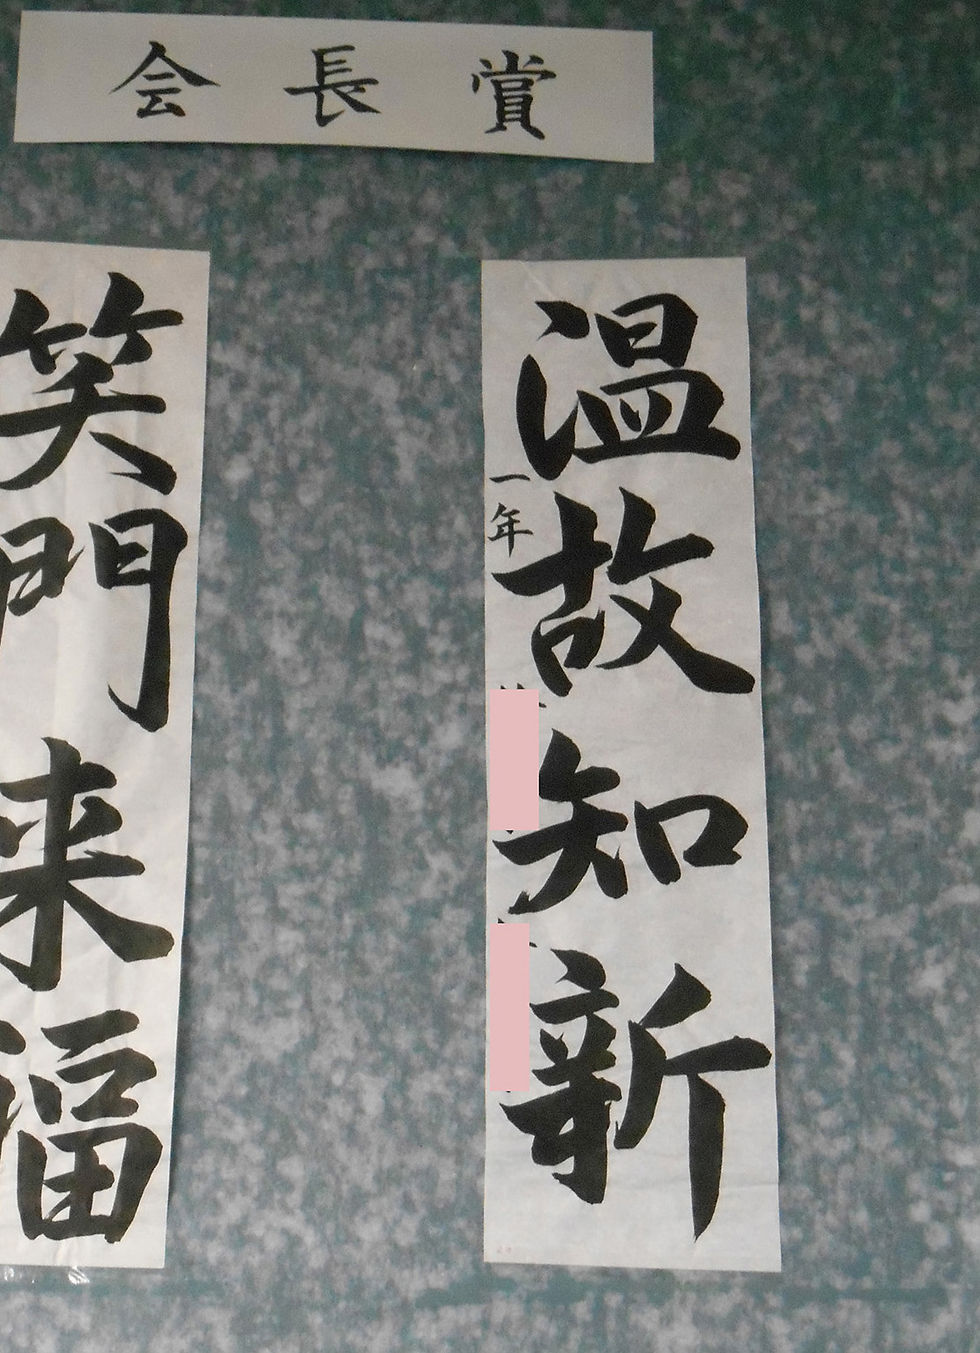 会長賞
温故知新
一年
笑門来福